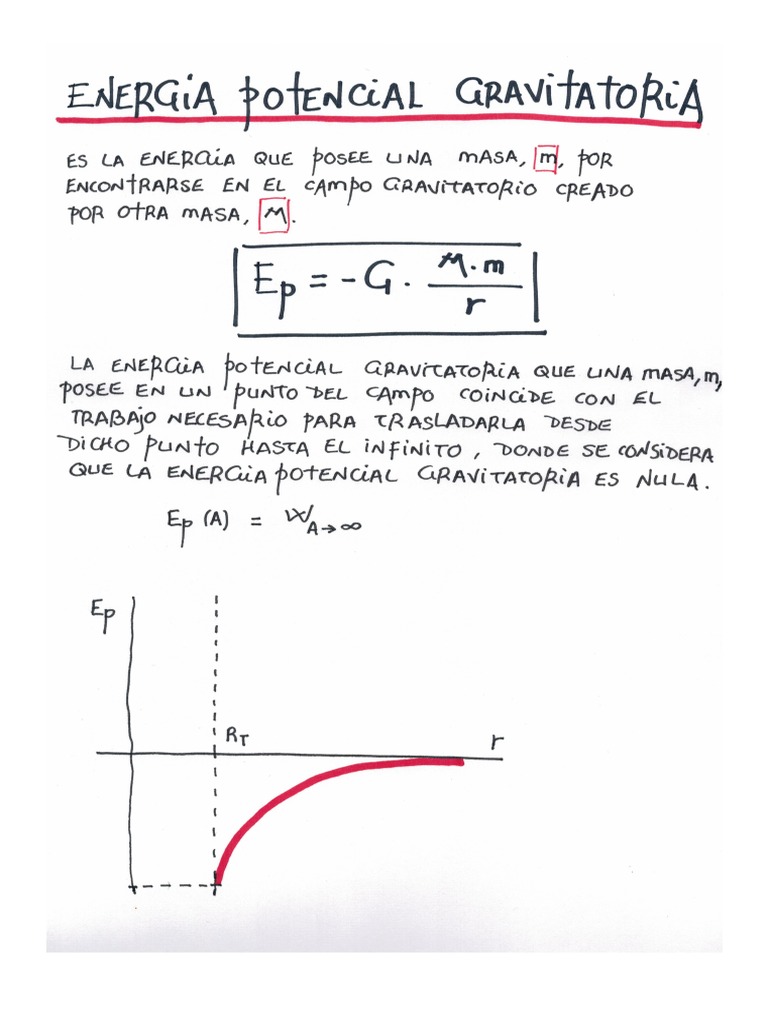 ENERGIA POTENCIAL GRAVITATORIA
ES LA ENERGIA QUE POSEE UNA MASA, m, POR
ENCONTRARSE EN EL CAMPO GRAVITATORIO CREADO
POR OTRA MASA, M.
Ep = - G · M · m / r
LA ENERGIA POTENCIAL GRAVITATORIA QUE UNA MASA, m,
POSEE EN UN PUNTO DEL CAMPO COINCIDE CON EL
TRABAJO NECESARIO PARA TRASLADARLA DESDE
DICHO PUNTO HASTA EL INFINITO, DONDE SE CONSIDERA
QUE LA ENERGIA POTENCIAL GRAVITATORIA ES NULA.
Ep (A) = W A→∞
Ep
RT
r